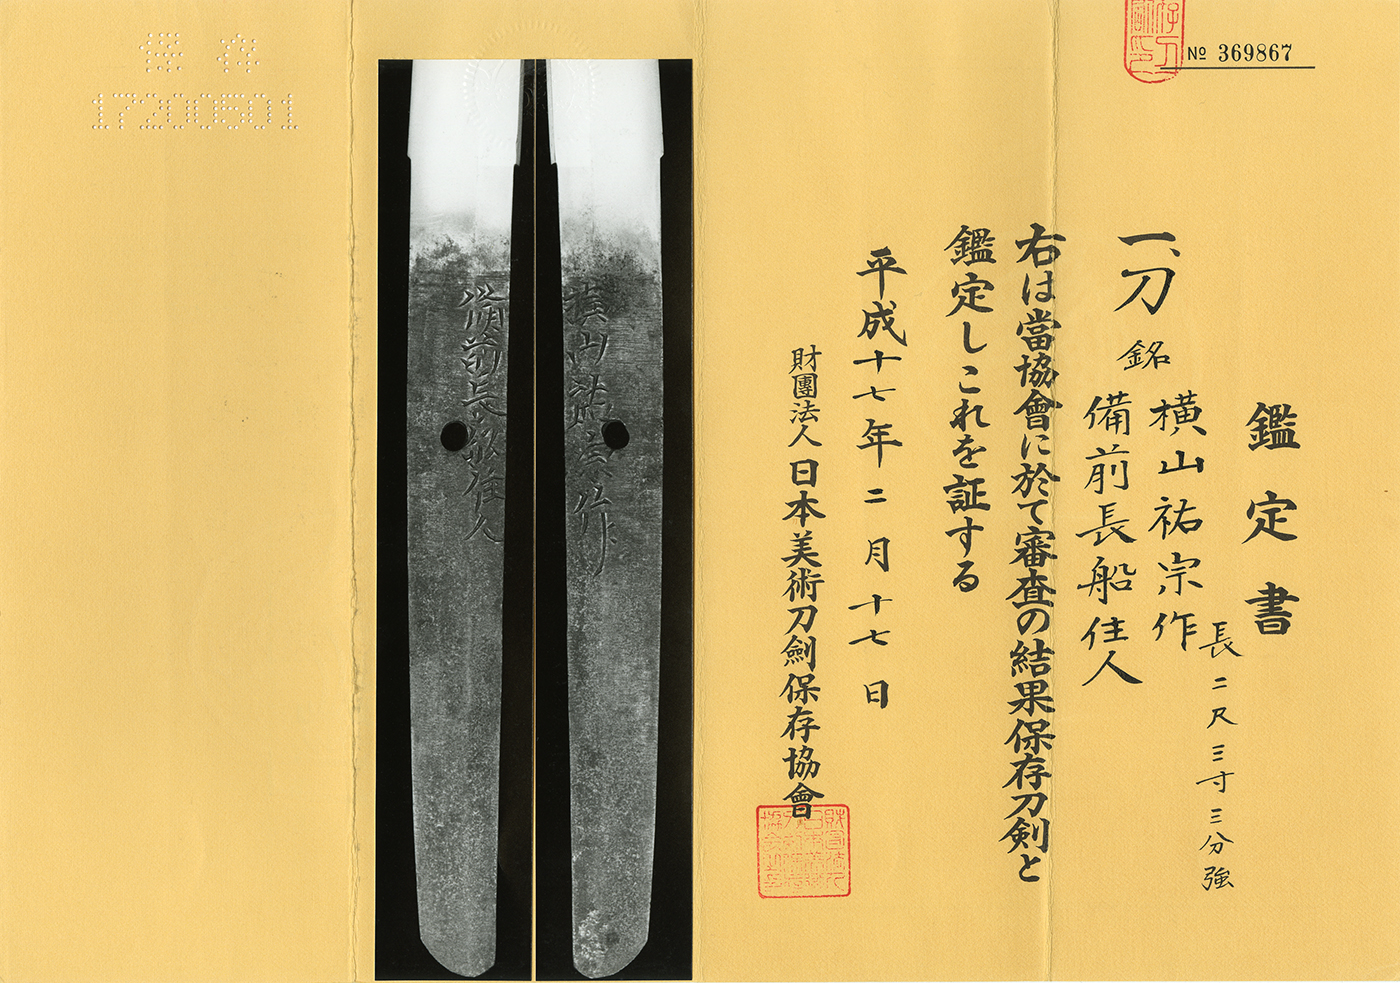 № 369867
鑑定書
長二尺三寸三分強
一、刀 銘 横山祐宗作
備前長船住人
右は當協會に於て審査の結果保存刀剣と
鑑定しこれを証する
平成十七年二月十七日
財團法人日本美術刀劍保存協會
横山祐宗作
備前長船住人
保存
17200501